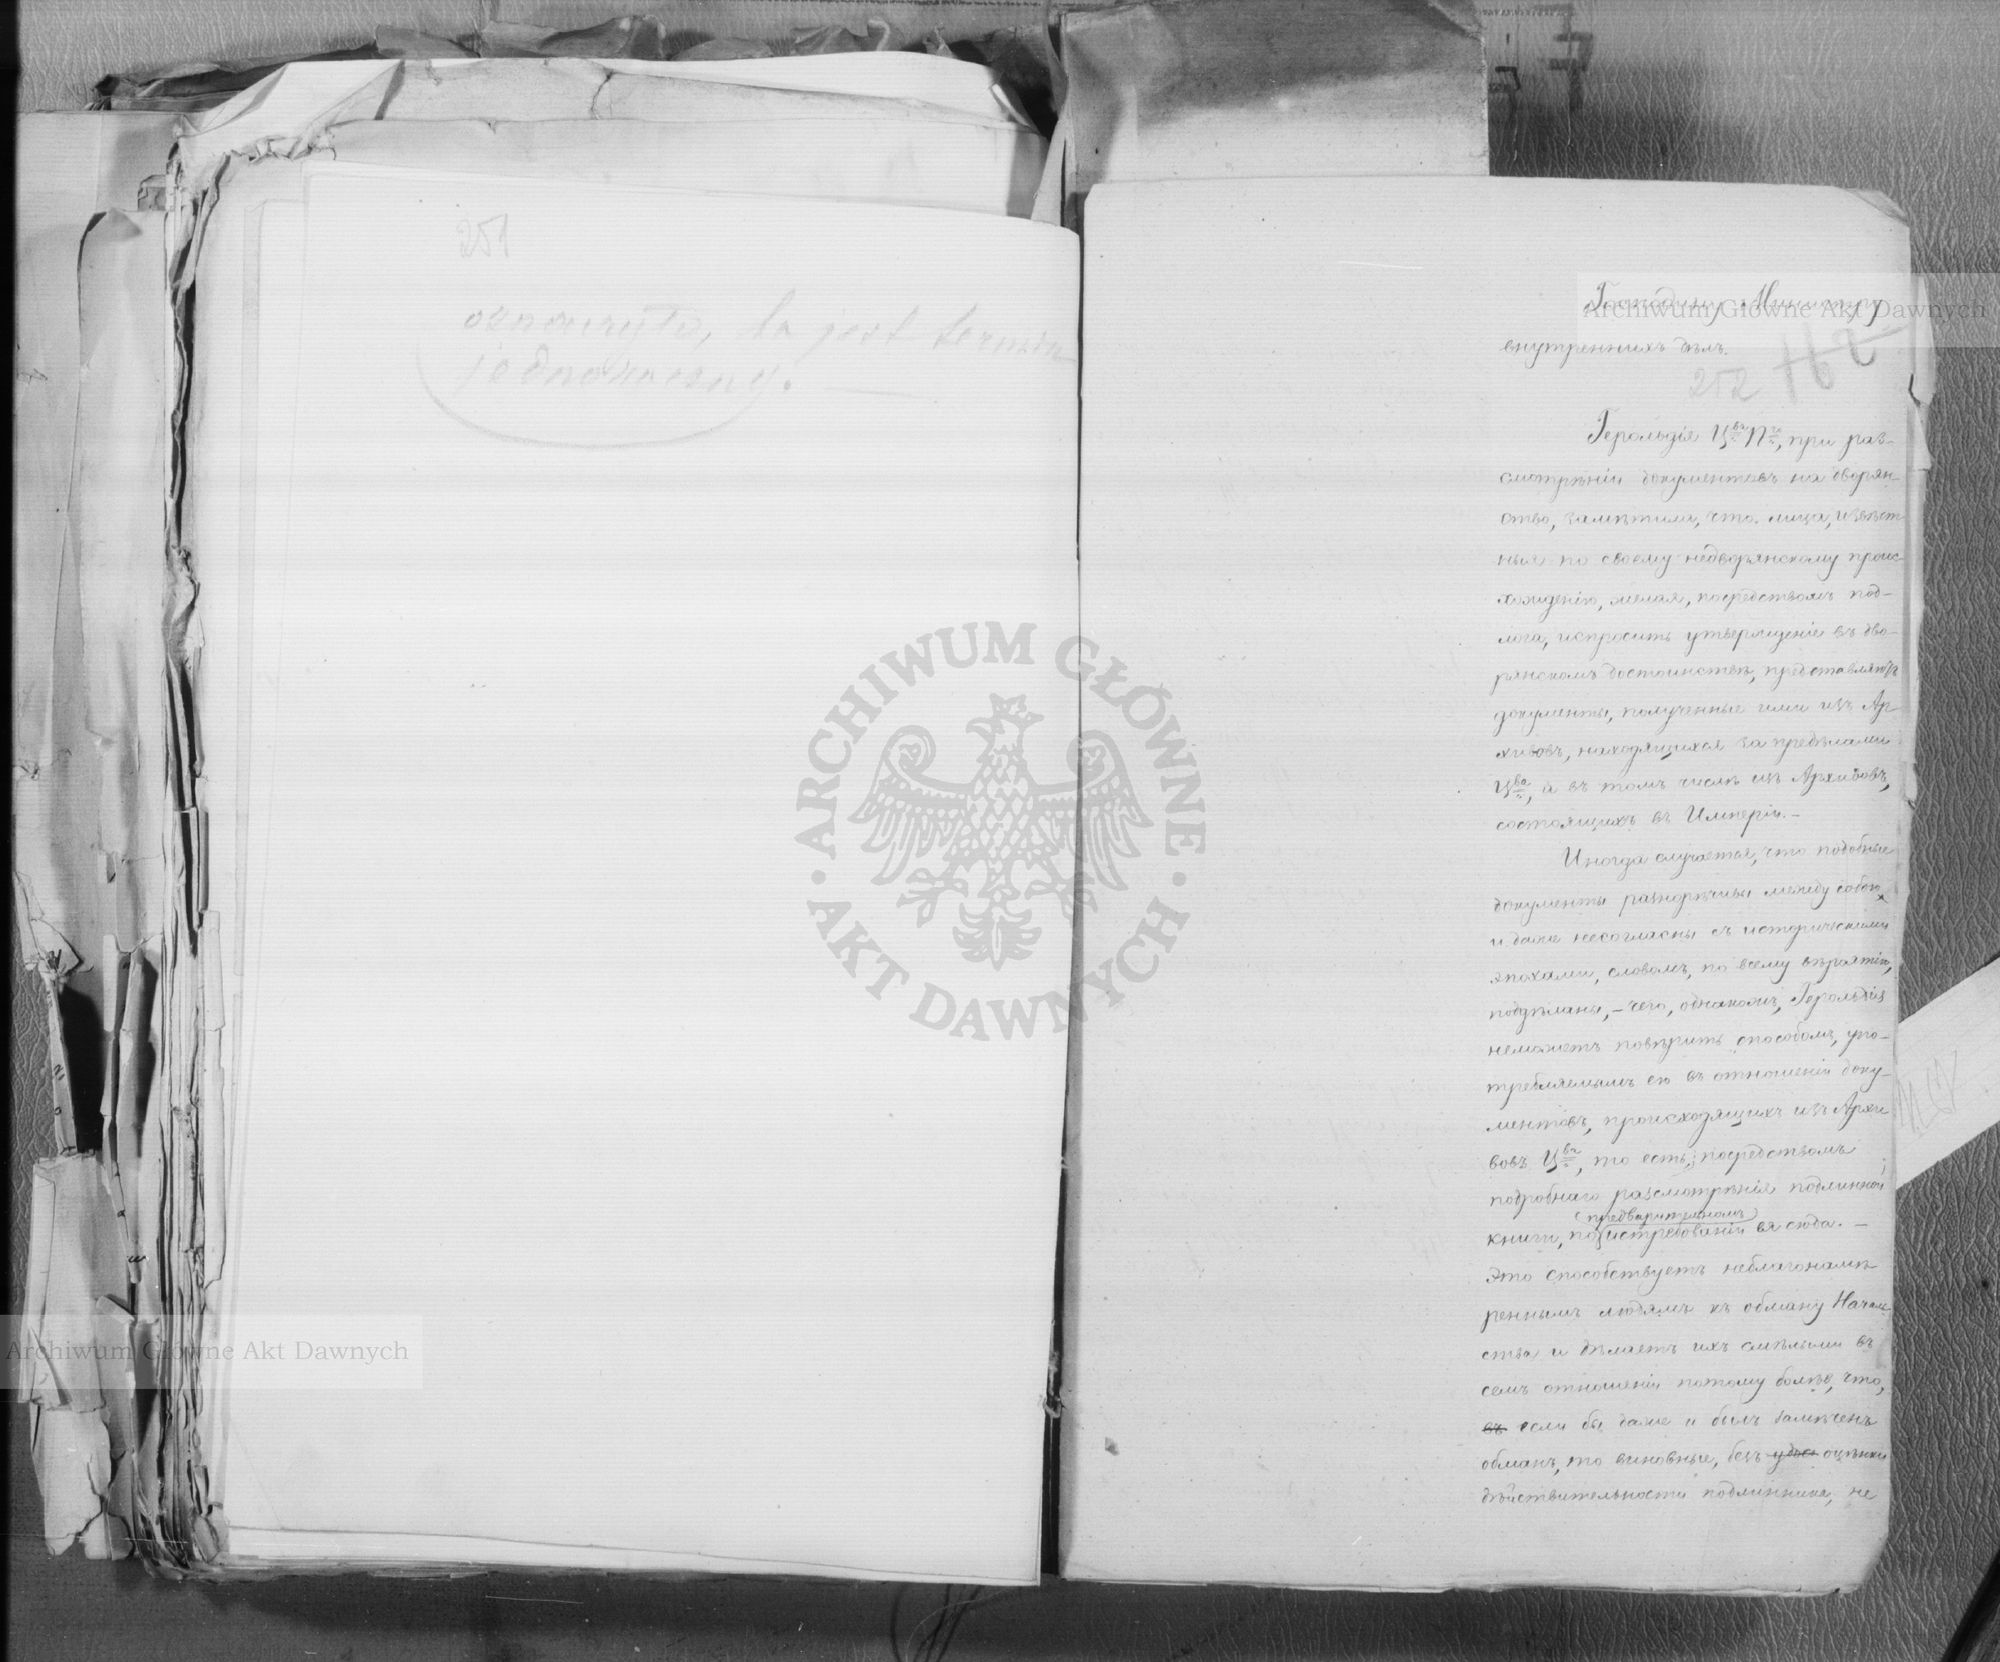 251
oznaczyła, ta jest termin
jednoroczny. —
Господину Министру
внутреннихъ дѣлъ.
252
Герольдія Ц<sup>ва</sup> П<sup>го</sup>, при раз-
смотрѣніи документовъ на дворян-
ство, замѣтила, что лица, извѣст-
ныя по своему недворянскому проис-
хожденію, желая, посредствомъ под-
лога, испросить утвержденіе въ дво-
рянскомъ достоинствѣ, представляютъ
документы, полученные ими изъ Ар-
хивовъ, находящихся за предѣлами
Ц<sup>ва</sup>, а въ томъ числѣ изъ Архивовъ,
состоящихъ въ Имперіи. –
Иногда случается, что подобные
документы разнорѣчивы между собою
и даже несогласны съ историческими
эпохами, словомъ, по всему вѣроятію,
поддѣланы, – чего, однакожъ, Герольдія
неможетъ повѣрить способомъ, упо-
требляемымъ ею въ отношеніи доку-
ментовъ, происходящихъ изъ Архи
вовъ Ц<sup>ва</sup>, то есть, посредствомъ
подробнаго разсмотрѣнія подлинной
предварительномъ
книги, по истребованіи ея сюда. —
Это способствуетъ неблагонамѣ-
реннымъ людямъ къ обману Началь-
ства и дѣлаетъ ихъ смѣлыми въ
семъ отношеніи потому болѣе, что,
въ если бы даже и былъ замѣченъ
обманъ, то виновные, безъ оцѣнки
дѣйствительности подлинника, не
Archiwum Główne Akt Dawnych
Archiwum Główne Akt Dawnych
ARCHIWUM GŁÓWNE · AKT DAWNYCH ·